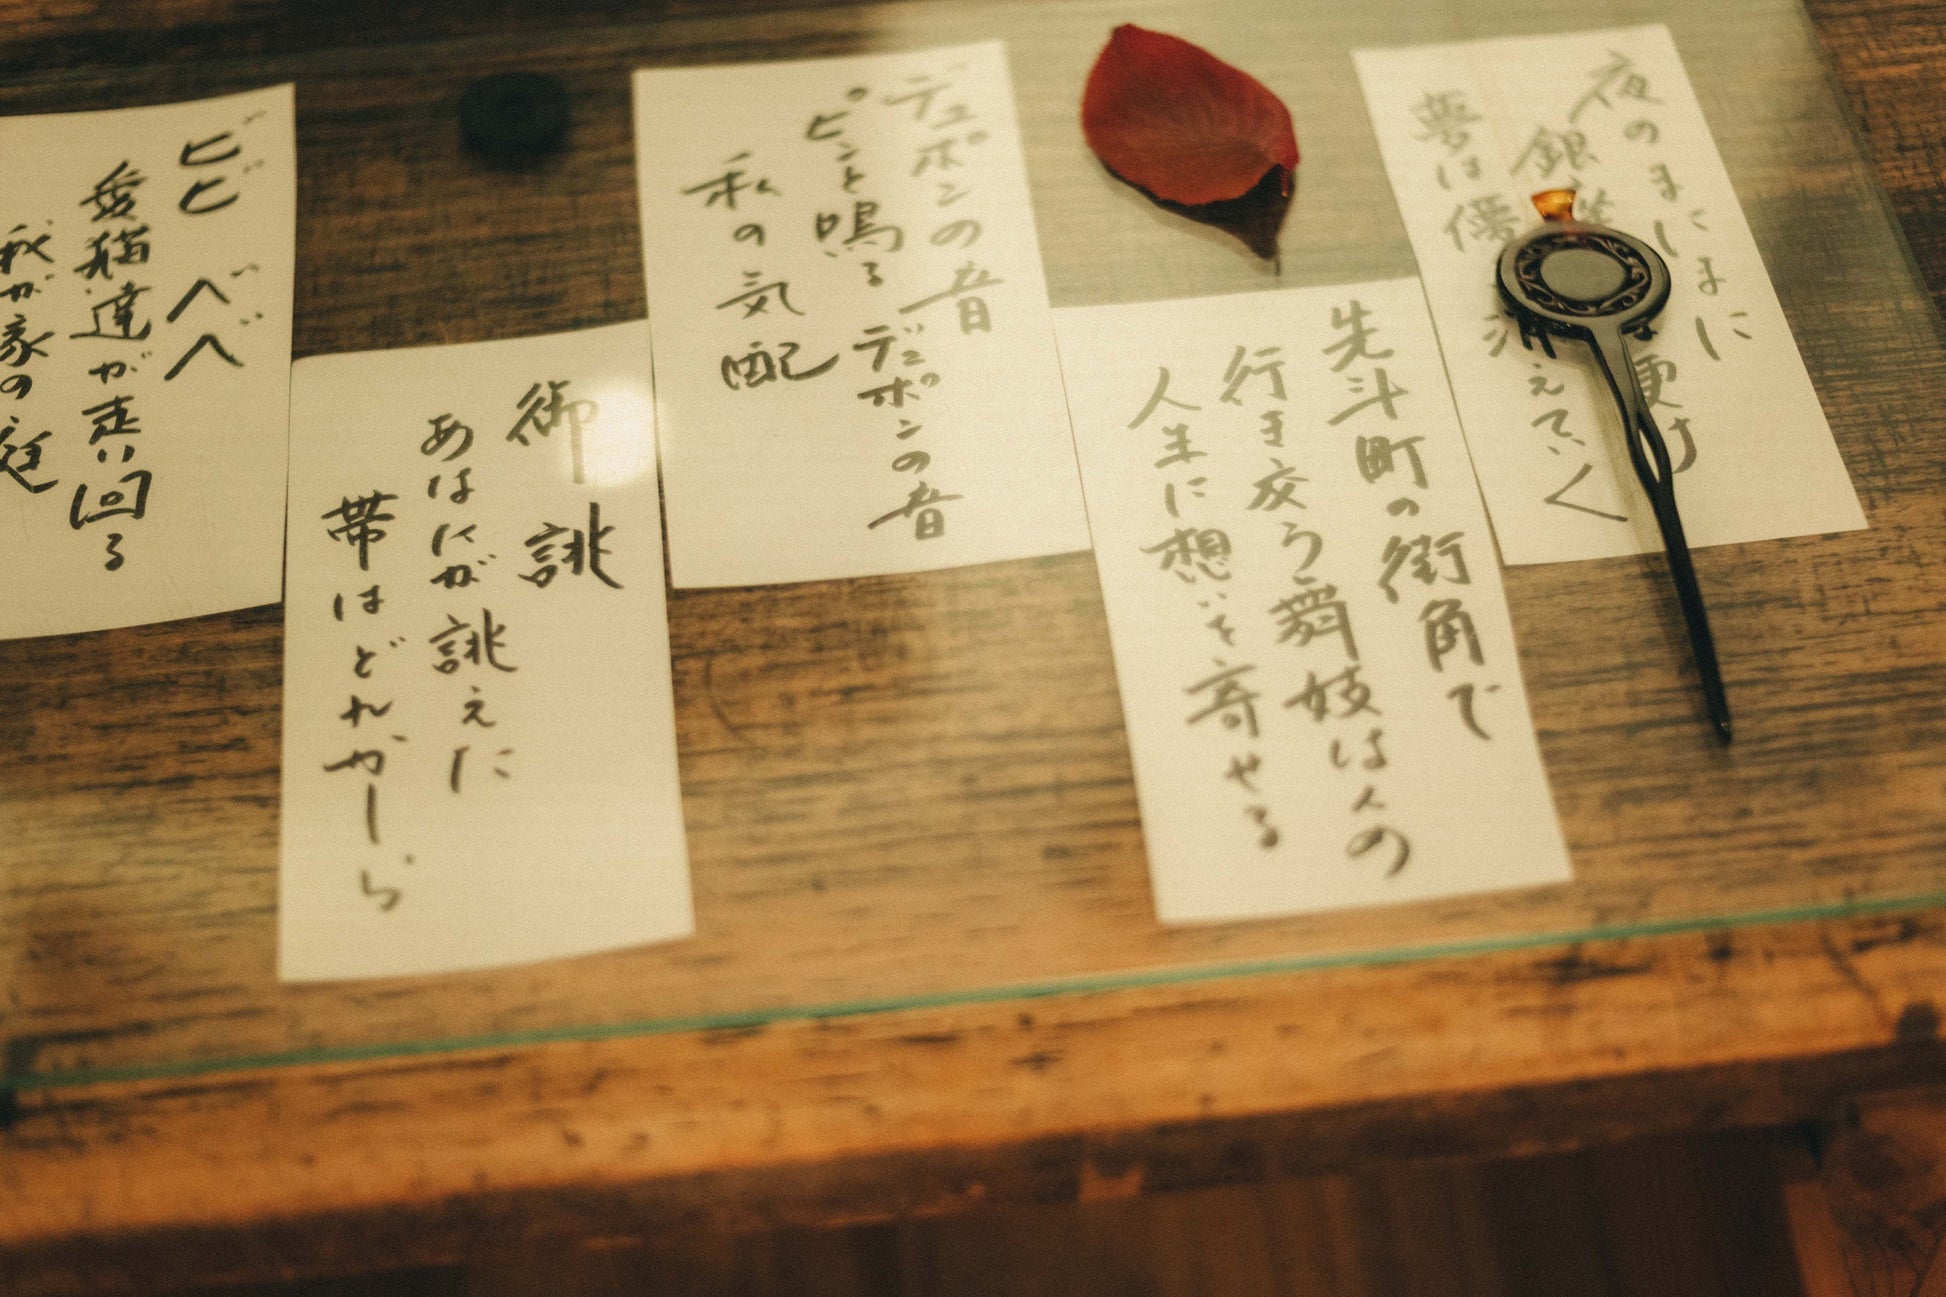 夜のまにまに
銀座
更け
夢は儚
消えていく
先斗町の街角で
行き交う舞妓は人の
人生に想いを寄せる
デュポンの音
ピンと鳴る デュポンの音
私の気配
御誂
あはにが誂えた
帯はどれかしら
ビビ ベベ
愛猫達が走い回る
我が家の庭